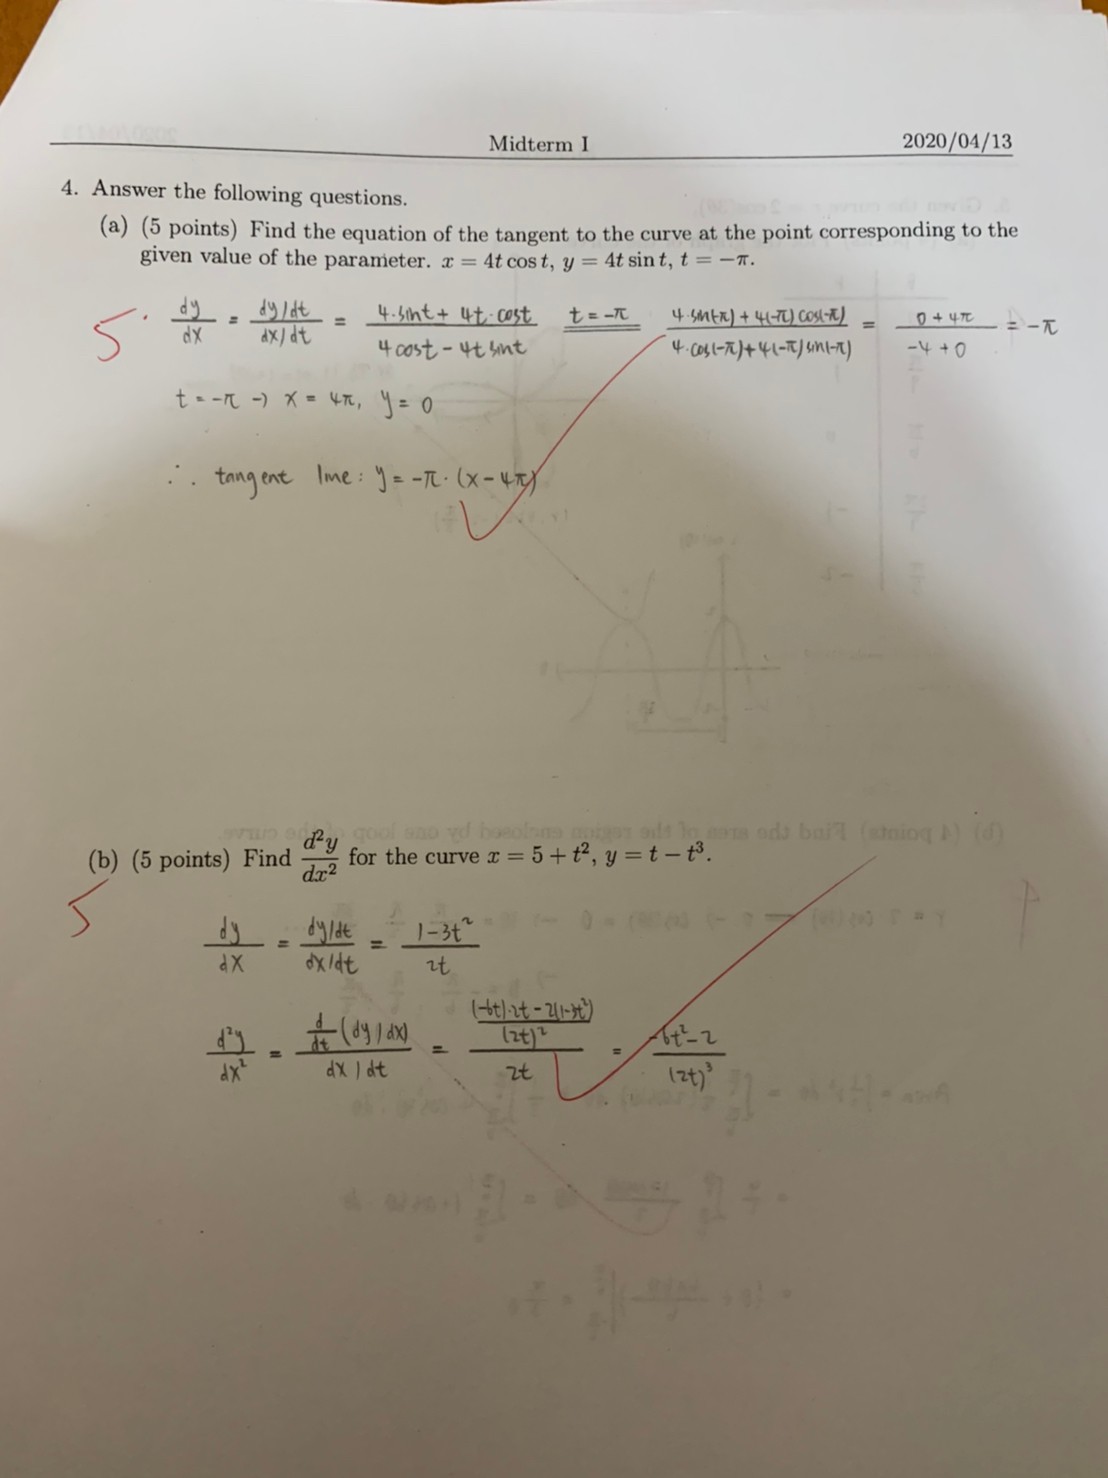 Midterm I 2020/04/13
4. Answer the following questions.
(a) (5 points) Find the equation of the tangent to the curve at the point corresponding to the
given value of the parameter. x = 4t cos t, y = 4t sin t, t = −π.
5
dy/dx = (dy/dt)/(dx/dt) = (4·sint + 4t·cost)/(4cost − 4t sint) t = −π (4·sin(−π) + 4(−π)cos(−π))/(4·cos(−π) + 4(−π)sin(−π)) = (0 + 4π)/(−4 + 0) = −π
t = −π → x = 4π, y = 0
∴ tangent line: y = −π·(x − 4π)
(b) (5 points) Find d²y/dx² for the curve x = 5 + t², y = t − t³.
5
dy/dx = (dy/dt)/(dx/dt) = (1−3t²)/2t
d²y/dx² = (d/dt (dy/dx))/(dx/dt) = (((−6t)·2t − 2(1−3t²))/(2t)²)/2t = (−6t²−2)/(2t)³